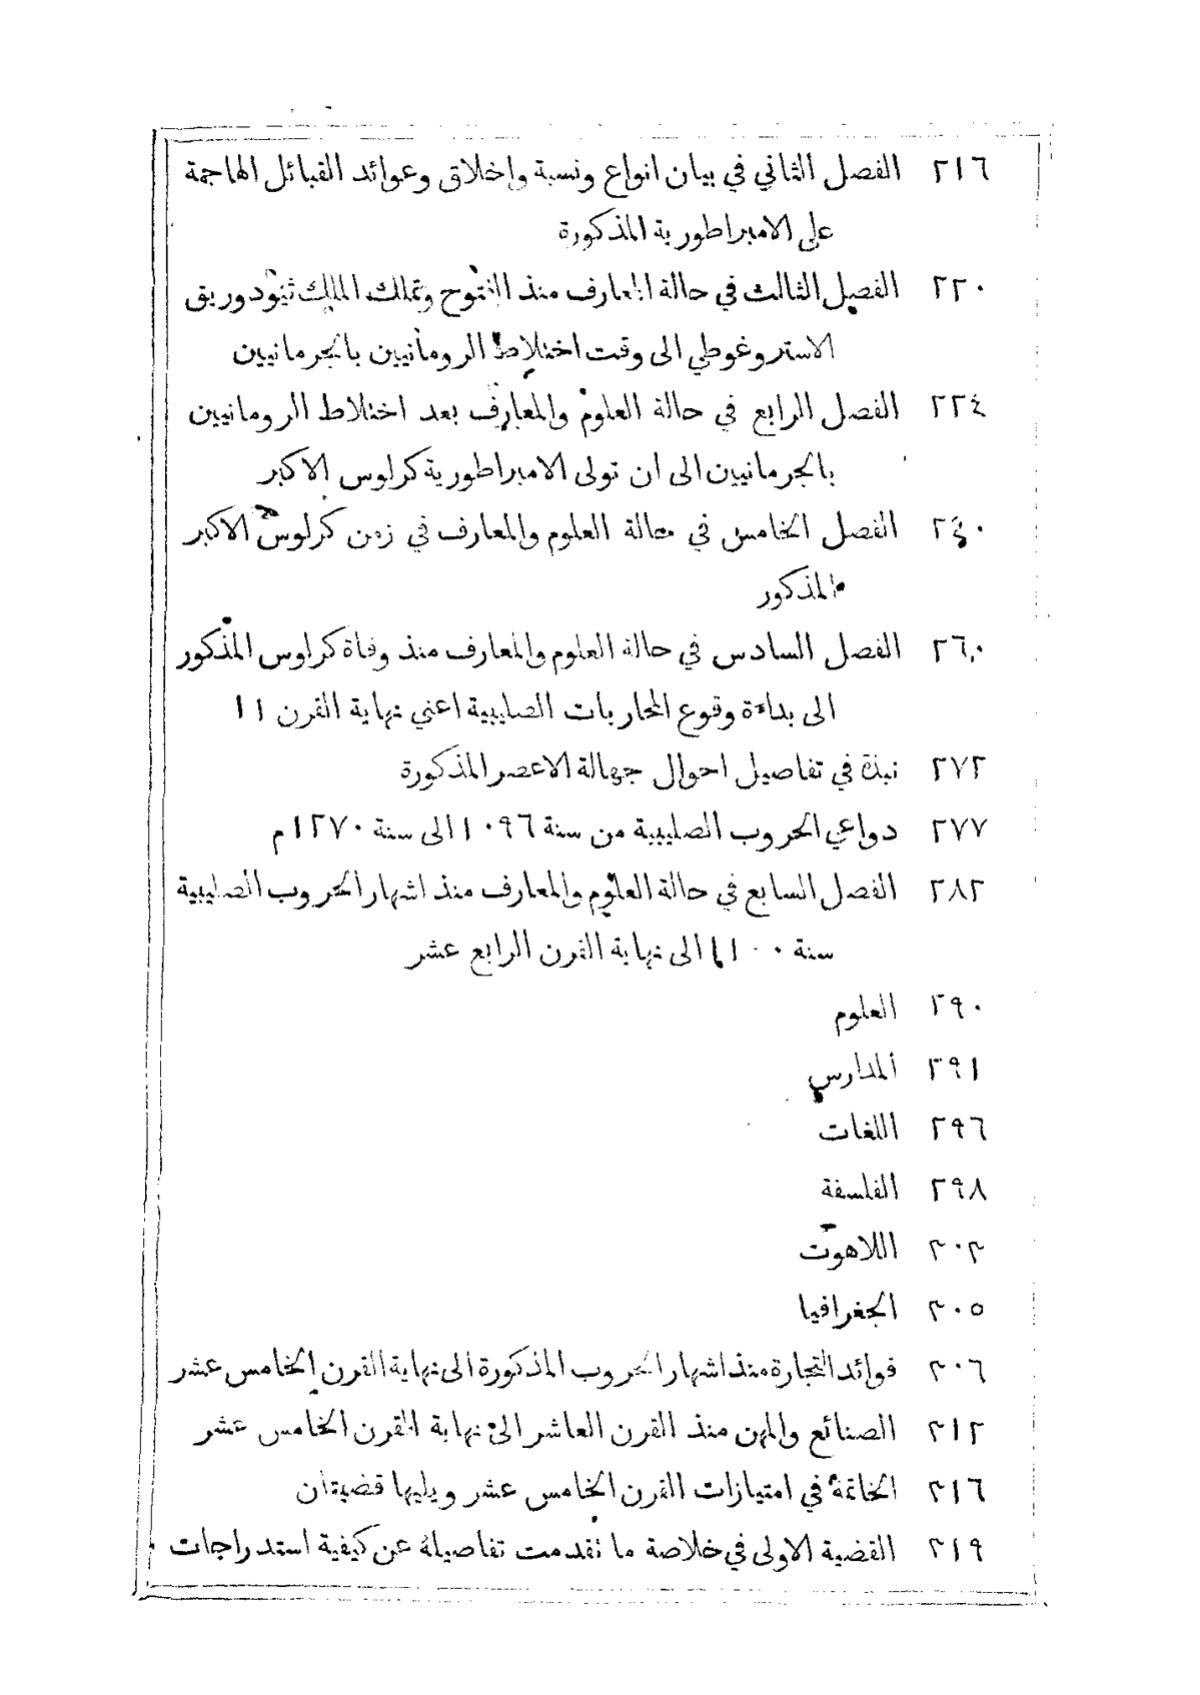 ٢١٦ الفصل الثاني في بيان انواع ونسبة واخلاق وعوائد القبائل الهاجمة
على الامبراطورية المذكورة
٢٢٠ الفصل الثالث في حالة المعارف منذ الفتوح وتملك الملك ثيودوريق
الاستروغوطي الى وقت اختلاط الرومانيين بالجرمانيين
٢٢٤ الفصل الرابع في حالة العلوم والمعارف بعد اختلاط الرومانيين
بالجرمانيين الى ان تولى الامبراطورية كرلوس الاكبر
٢٤٠ الفصل الخامس في حالة العلوم والمعارف في زمن كرلوس الاكبر
المذكور
٢٦٠ الفصل السادس في حالة العلوم والمعارف منذ وفاة كرلوس المذكور
الى بداءة وقوع المحاربات الصليبية اعني نهاية القرن ١١
٢٧٢ نبذة في تفاصيل احوال جهالة الاعصر المذكورة
٢٧٧ دواعي الحروب الصليبية من سنة ١٠٩٦ الى سنة ١٢٧٠م
٢٨٢ الفصل السابع في حالة العلوم والمعارف منذ اشهار الحروب الصليبية
سنة ١١٠٠ الى نهاية القرن الرابع عشر
٢٩٠ العلوم
٢٩١ المدارس
٢٩٦ اللغات
٢٩٨ الفلسفة
٣٠٣ اللاهوت
٣٠٥ الجغرافيا
٣٠٦ فوائد التجارة منذ اشهار الحروب المذكورة الى نهاية القرن الخامس عشر
٣١٢ الصنائع والمهن منذ القرن العاشر الى نهاية القرن الخامس عشر
٣١٦ الخاتمة في امتيازات القرن الخامس عشر ويليها قضيتان
٣١٩ القضية الاولى في خلاصة ما تقدمت تفاصيله عن كيفية استدراجات